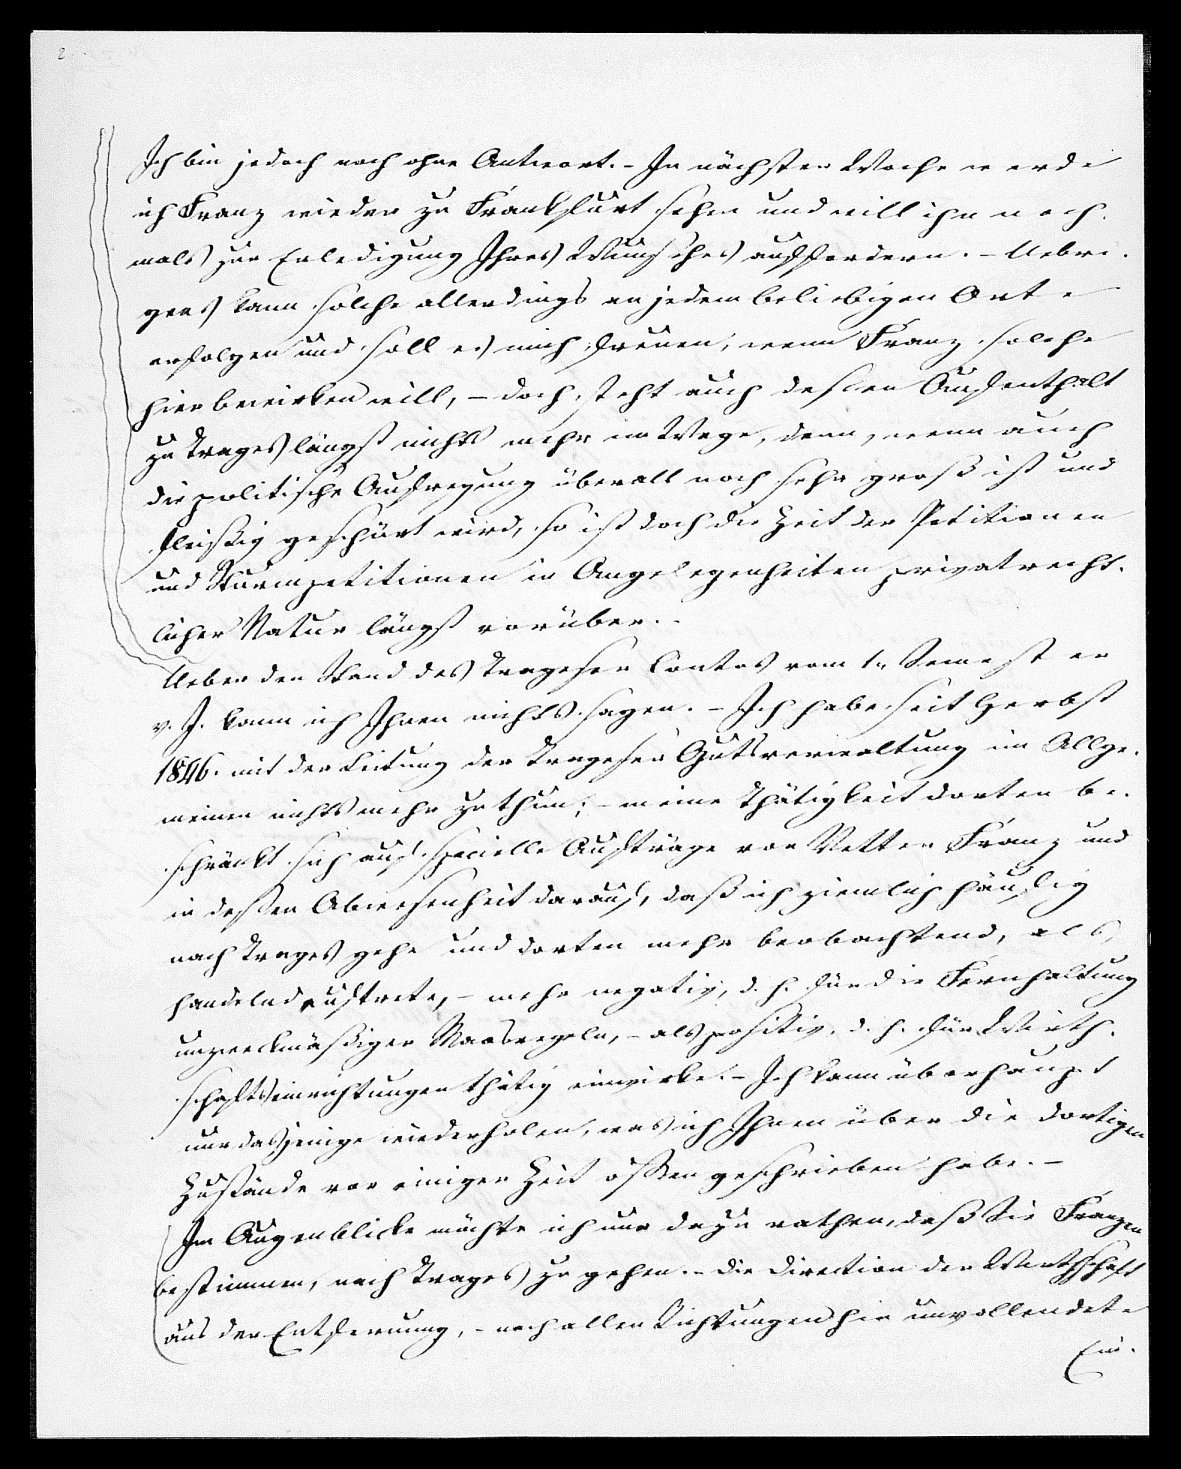 2
Ich bin jedoch noch ohne Antwort. – In nächster Woche werde
ich Franz wieder zu Frankfurt sehen und will ihn noch-
mals zur Erledigung Ihres Wunsches auffordern. – Uebri-
gens kann solche allerdings an jedem beliebigen Orte
erfolgen und soll es mich freuen, wenn Franz solche
hier bewirken will, – doch steht auch dessen Aufenthalt
zu Trages längst nichts mehr im Wege, denn, wenn auch
die politische Aufregung überall noch sehr groß ist und
fleißig geschürt wird, so ist doch die Zeit der Petitionen
und Sturmpetitionen in Angelegenheiten privatrecht-
licher Natur längst vorüber. –
Ueber den Stand des Trageser Contos vom 1. Semester
v. J. kann ich Ihnen nichts sagen. – Ich habe seit Herbst
1846. mit der Leitung der Trageser Gutsverwaltung im Allge-
meinen nichts mehr zu thun; – meine Thätigkeit dorten be-
schränkt sich auf specielle Aufträge von Vetter Franz und
in deßen Abwesenheit darauf, daß ich ziemlich häufig
nach Trages gehe und dorten mehr beobachtend, als
handelnd auftrete, – mehr negativ, d. h. für die Fernhaltung
unzweckmäßiger Maasregeln, – als positiv, d. h. für Wirth-
schaftseinrichtungen thätig einwirke. – Ich kann überhaupt
nur dasjenige wiederholen, was ich Ihnen über die dortigen
Zustände vor einiger Zeit offen geschrieben habe. –
Im Augenblicke möchte ich nur dazu rathen, daß Sie Franzen
bestimmen, nach Trages zu gehen. – Die Direction der Wirthschaft
aus der Entfernung, – nach allen Richtungen hin unvollendete
Ein-